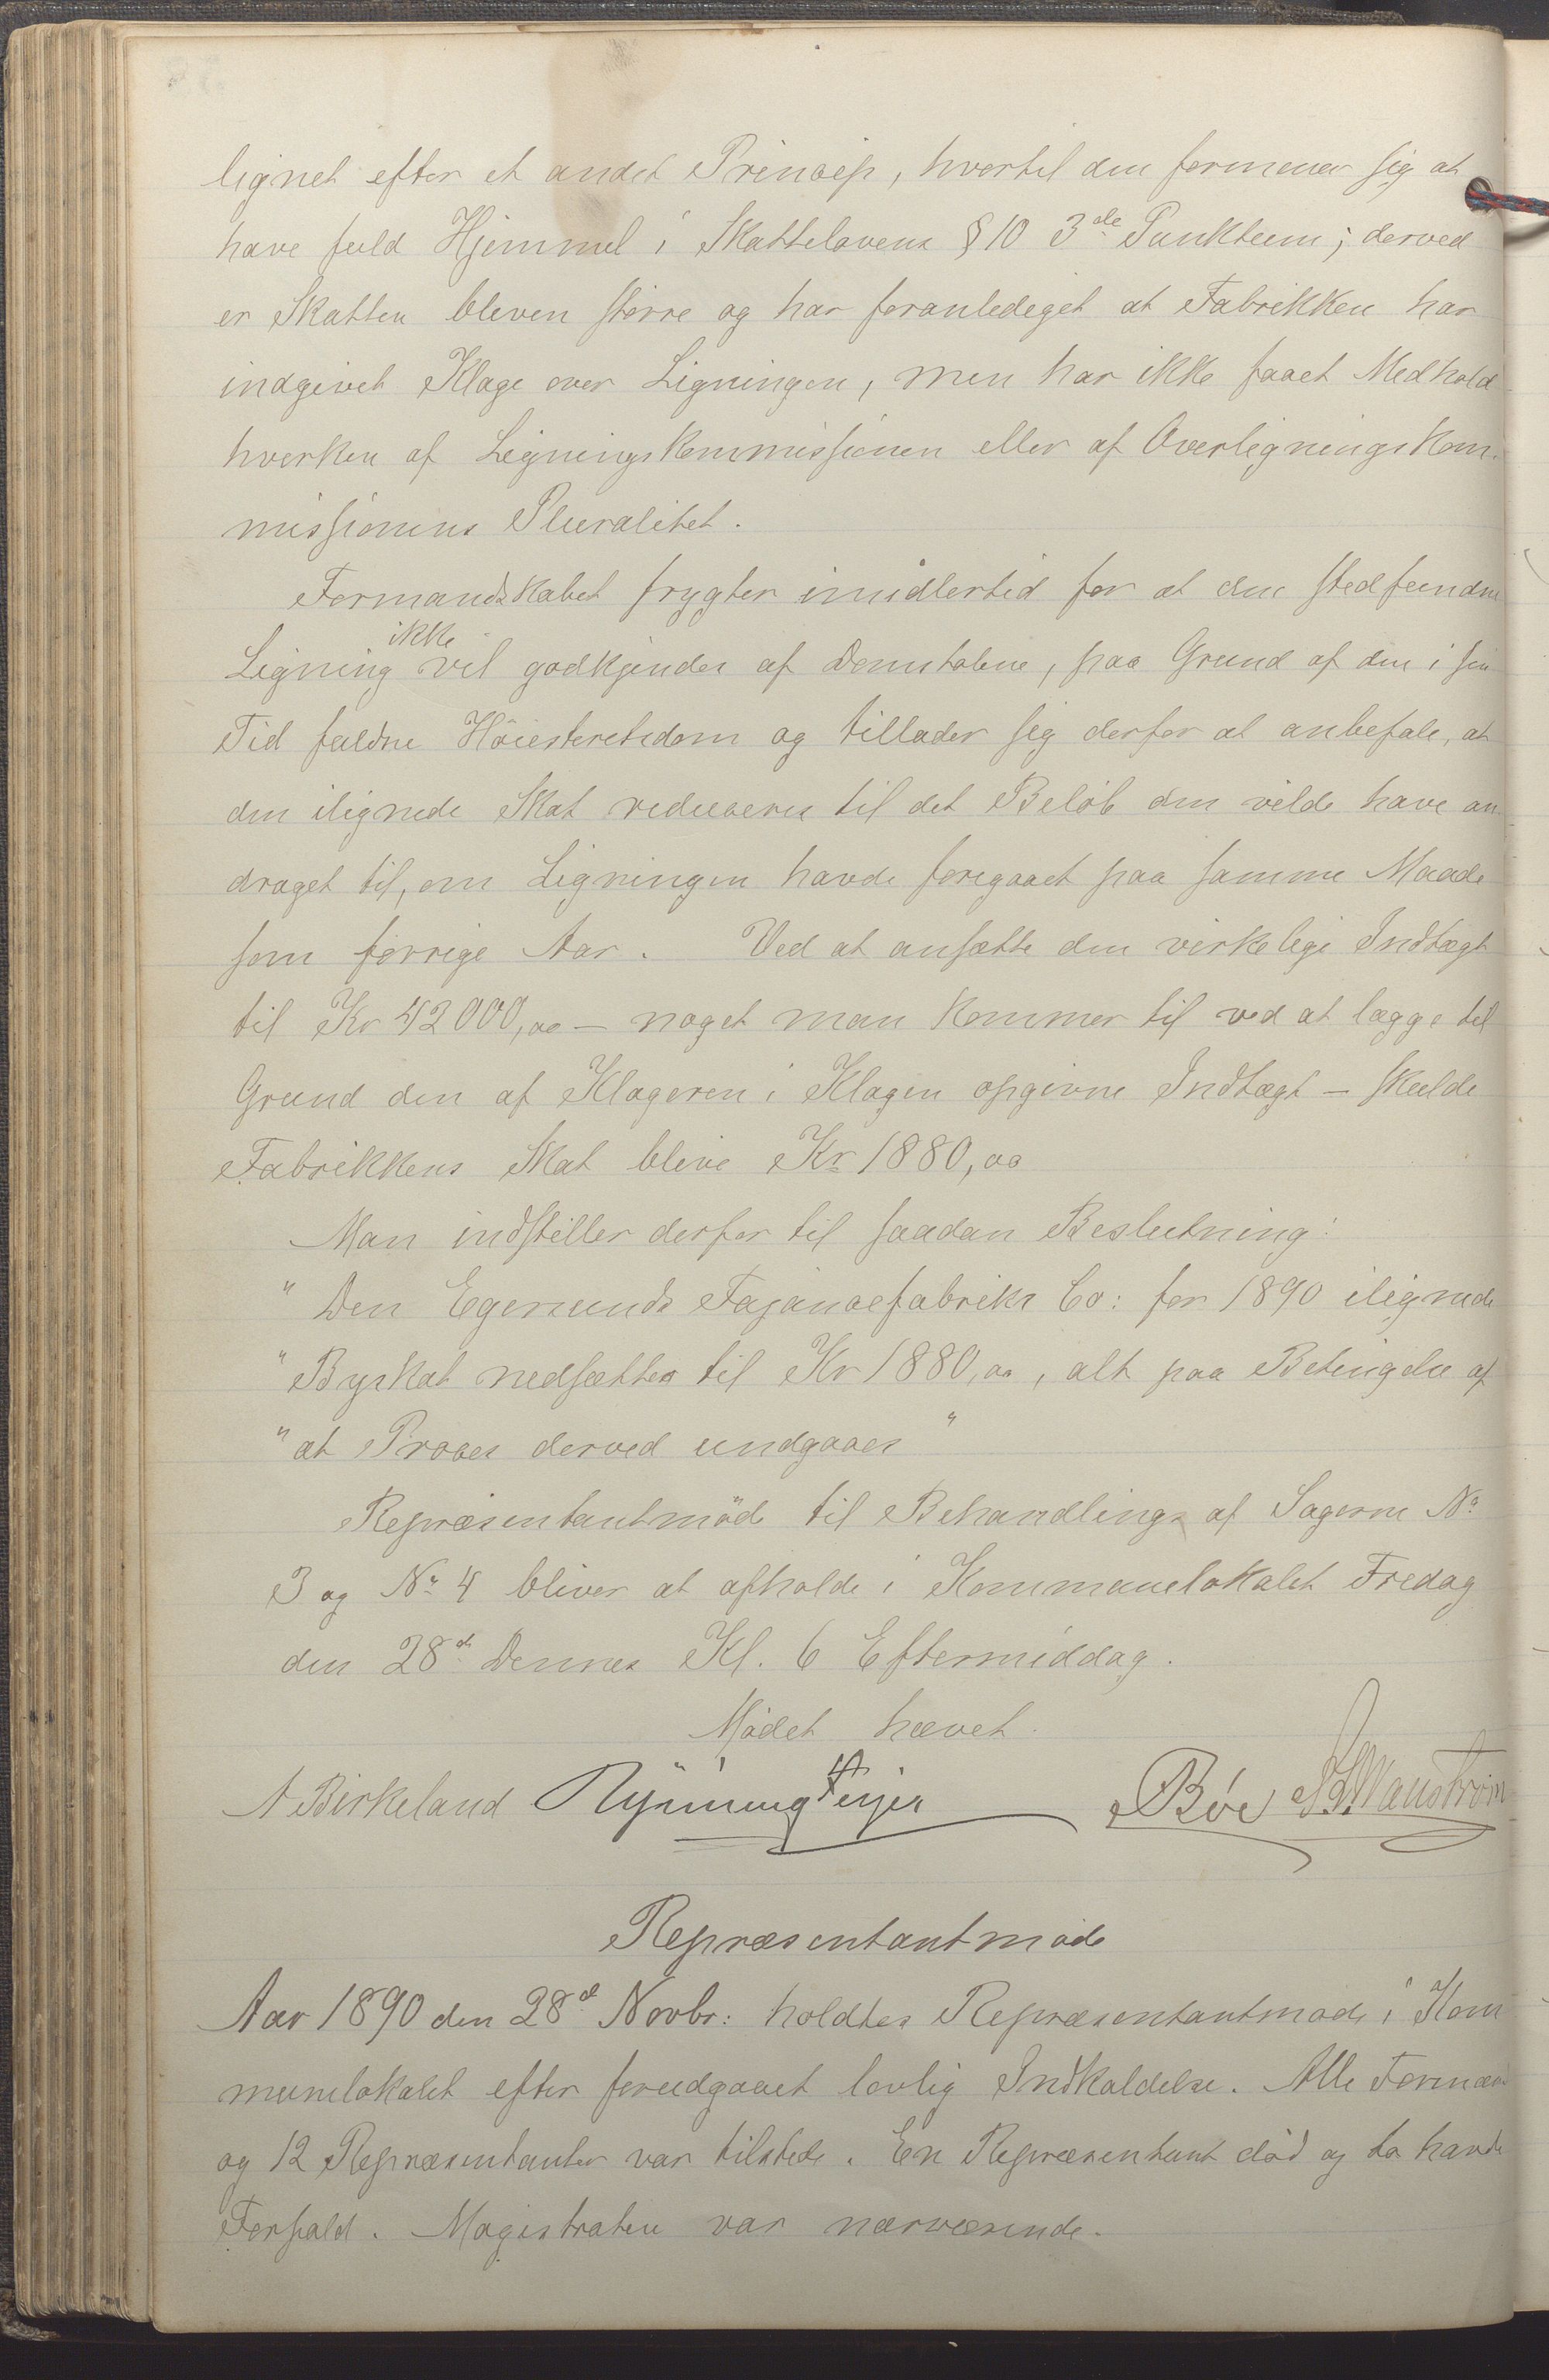 lignet efter et andet Princip, hvortil den formener sig at
have fuld Hjemmel i Skattelovens § 10 3die Punktum; derved
er Skatten bleven større og har foranlediget at Fabrikken har
indgivet Klage over Ligningen, men har ikke faaet Medhold
hverken af Ligningskommissionen eller af Overligningskom-
missionens Pluralitet.
Formandskabet frygter imidlertid for at den stedfundne
Ligning ikke vil godkjendes af Domstolene, paa Grund af den i sin
Tid faldne Høiesteretsdom og tillader sig derfor at anbefale, at
den ilignede Skat reduceres til det Beløb den vilde have an-
draget til, om Ligningen havde foregaaet paa samme Maade
som forrige Aar. Ved at ansætte den virkelige Indtægt
til Kr 42000,00 – noget man kommer til ved at lægge til
Grund den af Klageren i Klagen opgivne Indtægt – skulde
Fabrikkens Skat blive Kr 1880,00
Man indstiller derfor til saadan Beslutning:
" Den Egersunds Fajancefabriks Co: for 1890 ilignede
" Byskat nedsættes til Kr 1880,00, alt paa Betingelse af
" at Proces derved undgaaes "
Repræsentantmöde til Behandling af Sagerne No
3 og No 4 bliver at afholde i Kommunelokalet Fredag
den 28d Dennes Kl. 6 Eftermiddag.
Mödet hævet.
A Birkeland Rynning Feyer Bøe
Repræsentantmöde
Aar 1890 den 28d Novbr: holdtes Repræsentantmöde i Kom
munelokalet efter forudgaaet lovlig Indkaldelse. Alle Formænd
og 12 Repræsentanter var tilstede. En Repræsentant död og to havde
Forfald. Magistraten var nærværende.